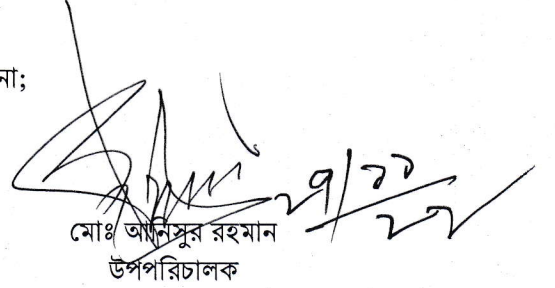 না;
২৭/১১
২২
মোঃ আনিসুর রহমান
উপপরিচালক